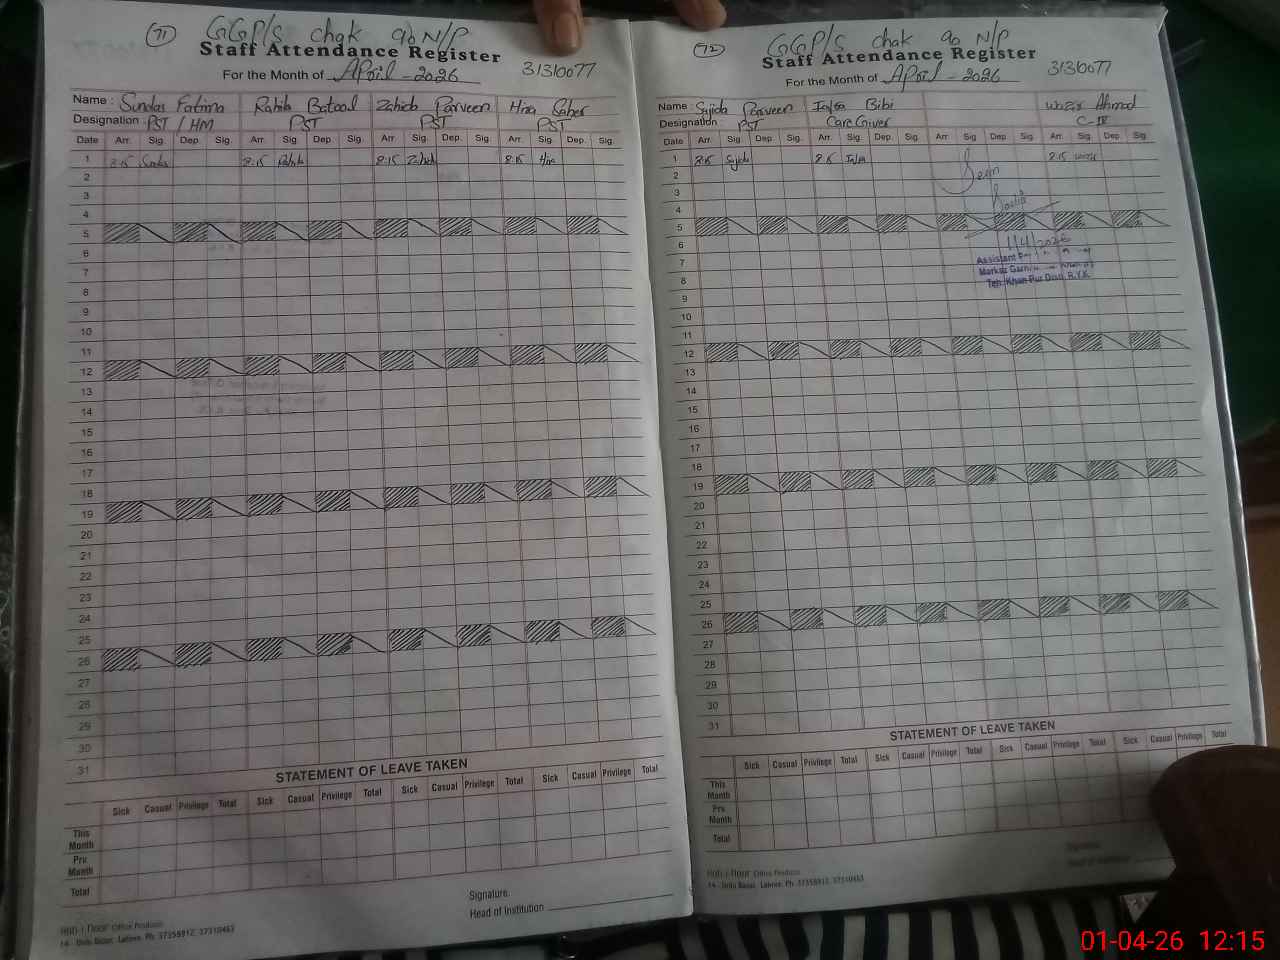 71 GGP/S chak 90 N/P
Staff Attendance Register
For the Month of April - 2026 31310077
Name : Sundas Fatima Rahila Batool Zahida Parveen Hira Saher
Designation : PST / HM PST PST PST
Date Arr. Sig. Dep. Sig. Arr. Sig. Dep. Sig. Arr. Sig. Dep. Sig. Arr. Sig. Dep. Sig.
1 8:15 Sundas 8:15 Rahila 8:15 Zahida 8:15 Hira
2
3
4
5
6
7
8
9
10
11
12
13
14
15
16
17
18
19
20
21
22
23
24
25
26
27
28
29
30
31
STATEMENT OF LEAVE TAKEN
Sick Casual Privilege Total Sick Casual Privilege Total Sick Casual Privilege Total Sick Casual Privilege Total
This Month
Prv. Month
Total
Signature.
Head of Institution
Office Products
14 - Urdu Bazar, Lahore. Ph: 37358912, 37310463
72 GGP/S chak 90 N/P
Staff Attendance Register
For the Month of April - 2026 31310077
Name : Sajida Parveen Iqra Bibi Wazir Ahmad
Designation : PST Care Giver C-IV
Date Arr. Sig. Dep. Sig. Arr. Sig. Dep. Sig. Arr. Sig. Dep. Sig. Arr. Sig. Dep. Sig.
1 8:15 Sajida 8:15 Iqra 8:15 Wazir
2 Seen
3
4
5
6 1/4/2026
7 Assistant
8 Teh: Khan Pur Distt. R.Y.K
9
10
11
12
13
14
15
16
17
18
19
20
21
22
23
24
25
26
27
28
29
30
31
STATEMENT OF LEAVE TAKEN
Sick Casual Privilege Total Sick Casual Privilege Total Sick Casual Privilege Total Sick Casual Privilege Total
This Month
Prv. Month
Total
Head of Institution
Office Products
14 - Urdu Bazar, Lahore. Ph: 37358912, 37310463
01-04-26 12:15